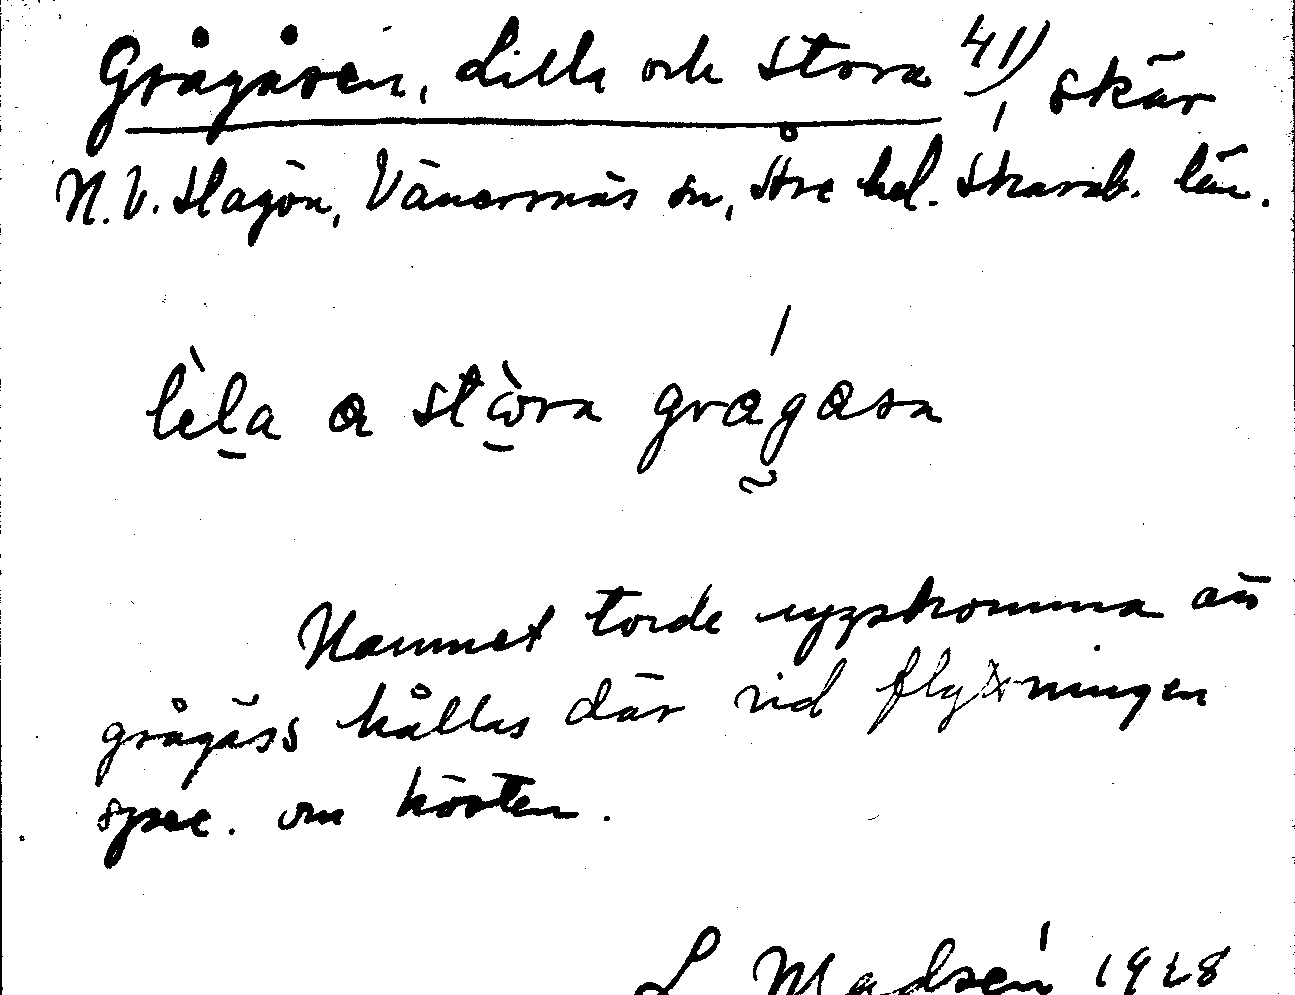 Grågåsen, Lilla och Stora 41), skär
N.V. Slagön, Vänersnäs sn, Åse hd. Skarab. län.
lèla a stòra grágasa
Namnet torde uppkomma av
grågäss hållas där vid flyttningen
spec. om hösten.
L Madsén 1928